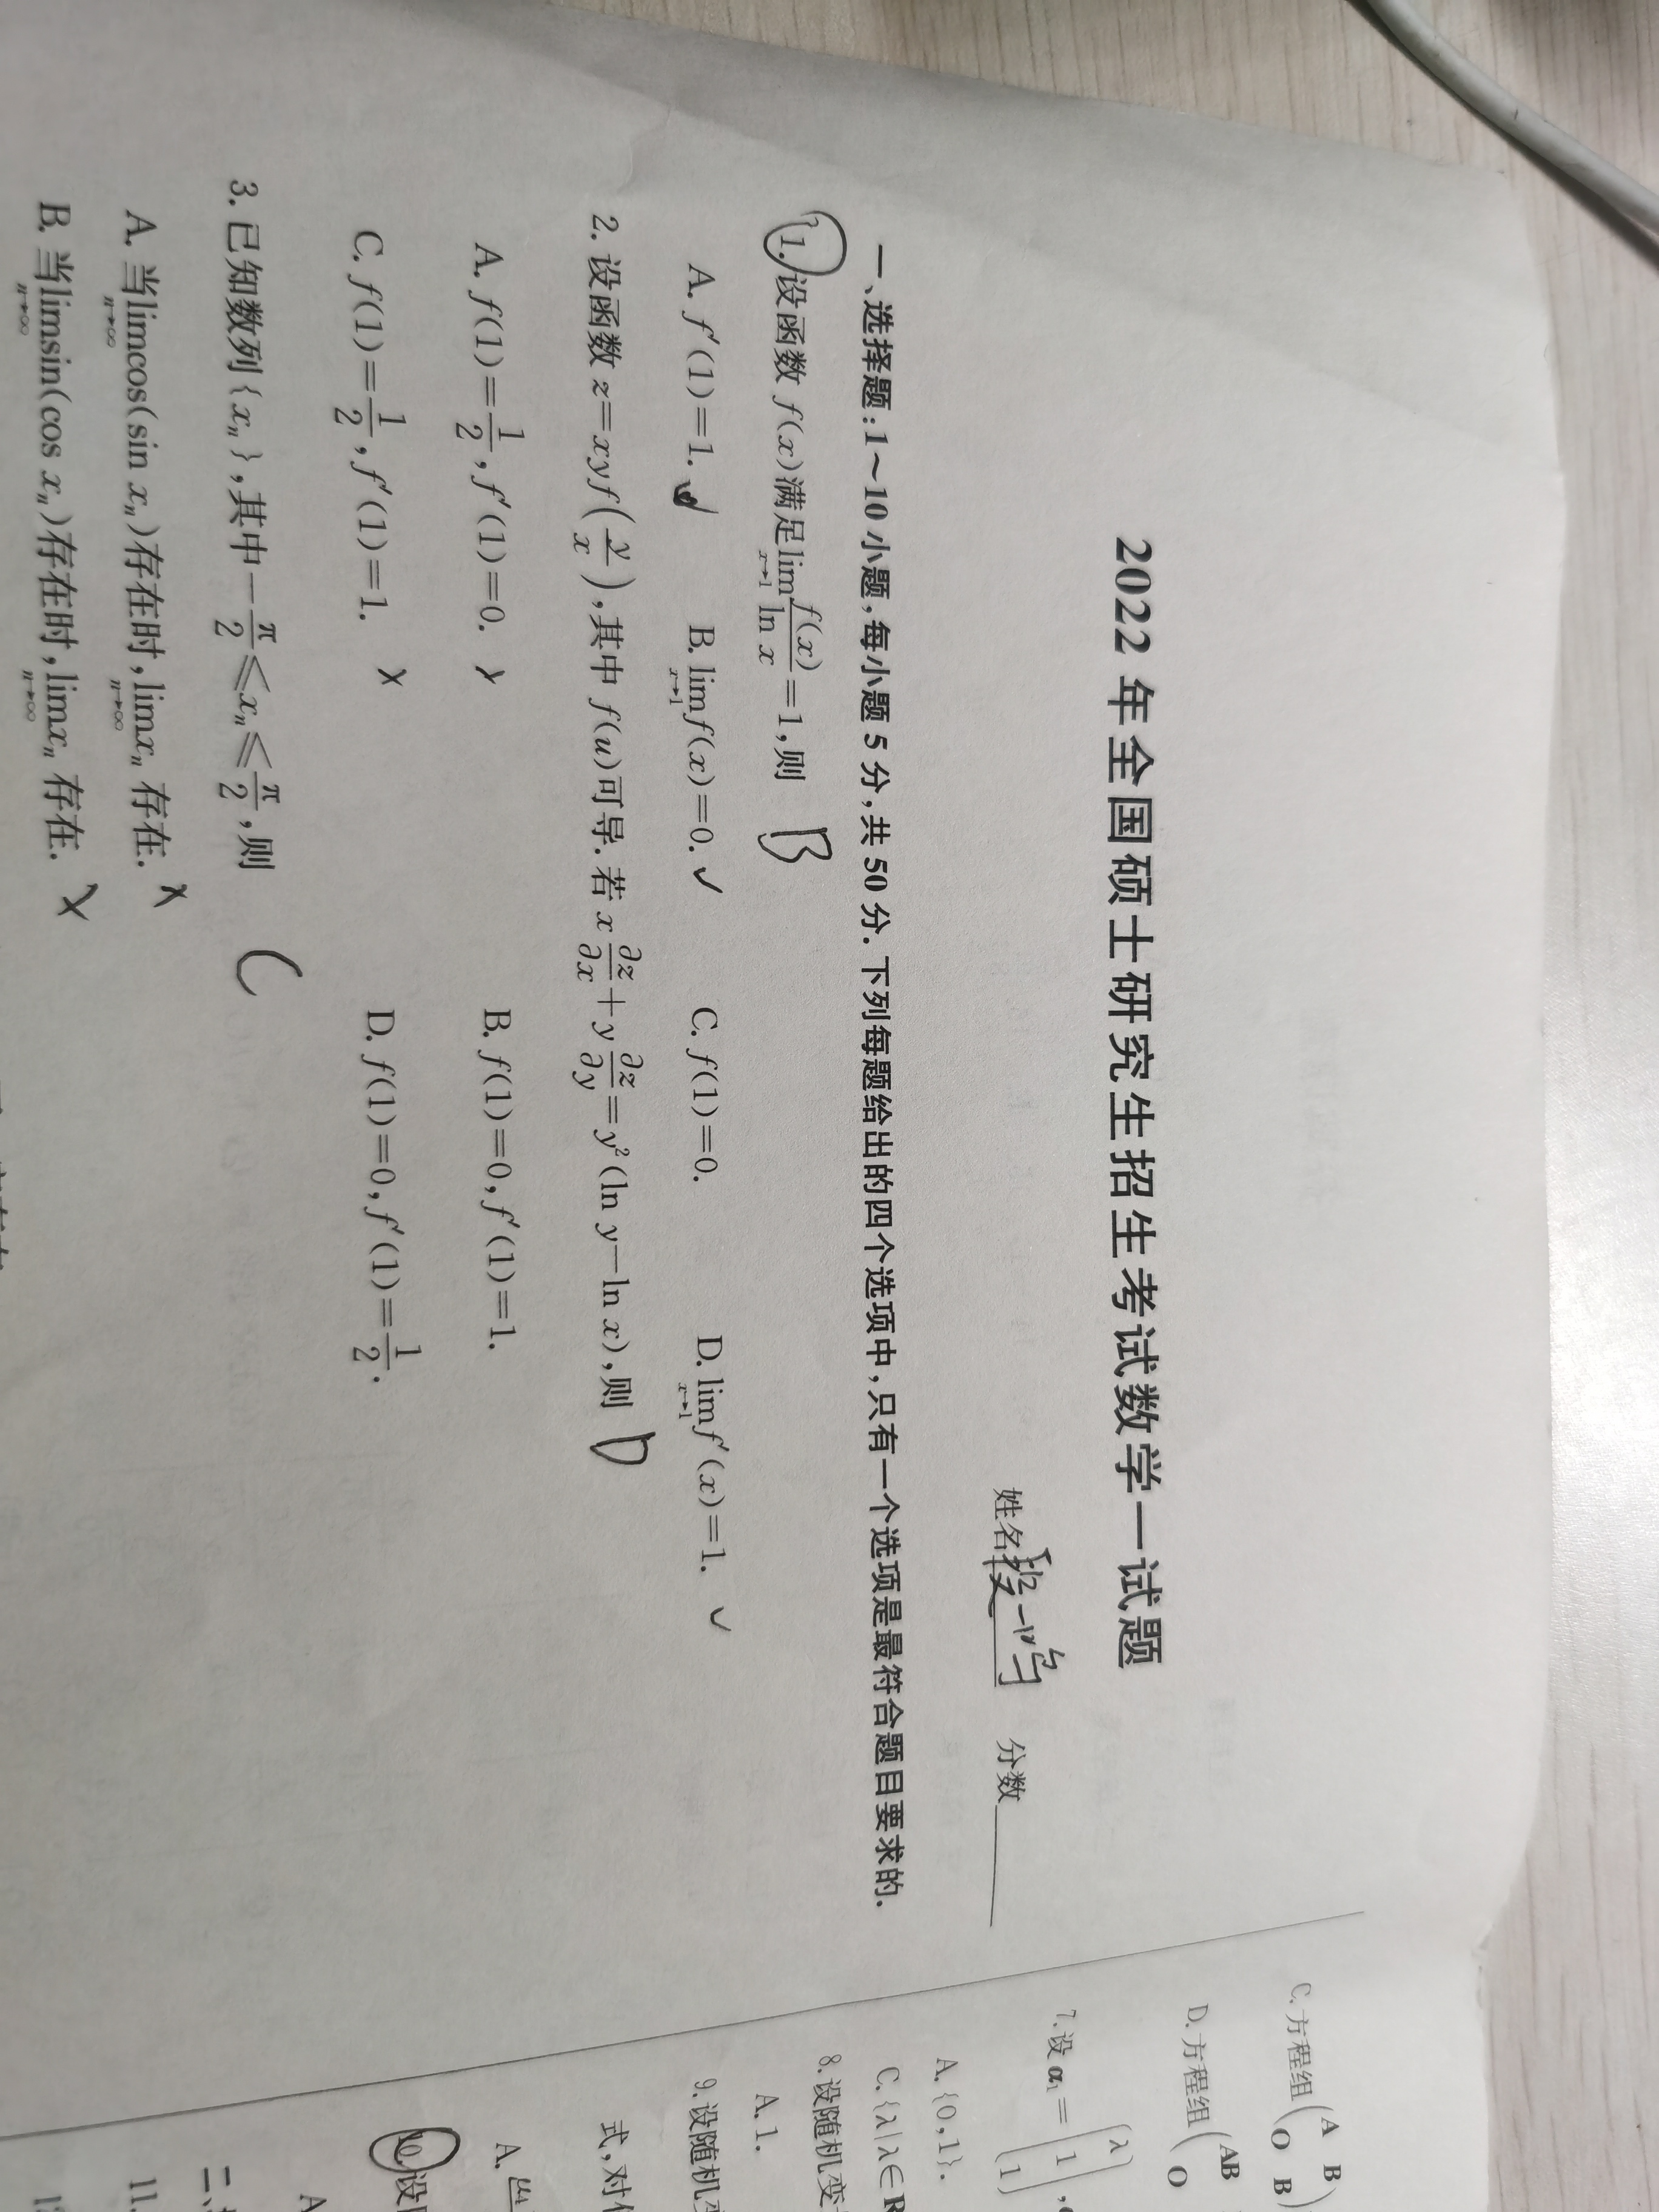 2022 年全国硕士研究生招生考试数学一试题
姓名 分数
一、选择题:1~10 小题,每小题 5 分,共 50 分. 下列每题给出的四个选项中,只有一个选项是最符合题目要求的.
1. 设函数 f(x)满足lim_{x→1} f(x)/ln x=1,则 B
A. f′(1)=1. B. lim_{x→1} f(x)=0. ✓ C. f(1)=0. D. lim_{x→1} f′(x)=1. ✓
2. 设函数 z=xyf(y/x),其中 f(u)可导. 若 x ∂z/∂x+y ∂z/∂y=y²(ln y−ln x),则 D
A. f(1)=1/2,f′(1)=0. × B. f(1)=0,f′(1)=1.
C. f(1)=1/2,f′(1)=1. × D. f(1)=0,f′(1)=1/2.
3. 已知数列{xₙ},其中−π/2≤xₙ≤π/2,则 C
A. 当lim_{n→∞} cos(sin xₙ)存在时,lim_{n→∞} xₙ 存在. ×
B. 当lim_{n→∞} sin(cos xₙ)存在时,lim_{n→∞} xₙ 存在. ×
C. 方程组(A B
O B)
D. 方程组(AB
O
7. 设 α₁=(λ
1
1),
A. {0,1}.
C. {λ|λ∈R
8. 设随机变
A. 1.
9. 设随机变
式,对任
A.
10. 设随
A
二、
11.